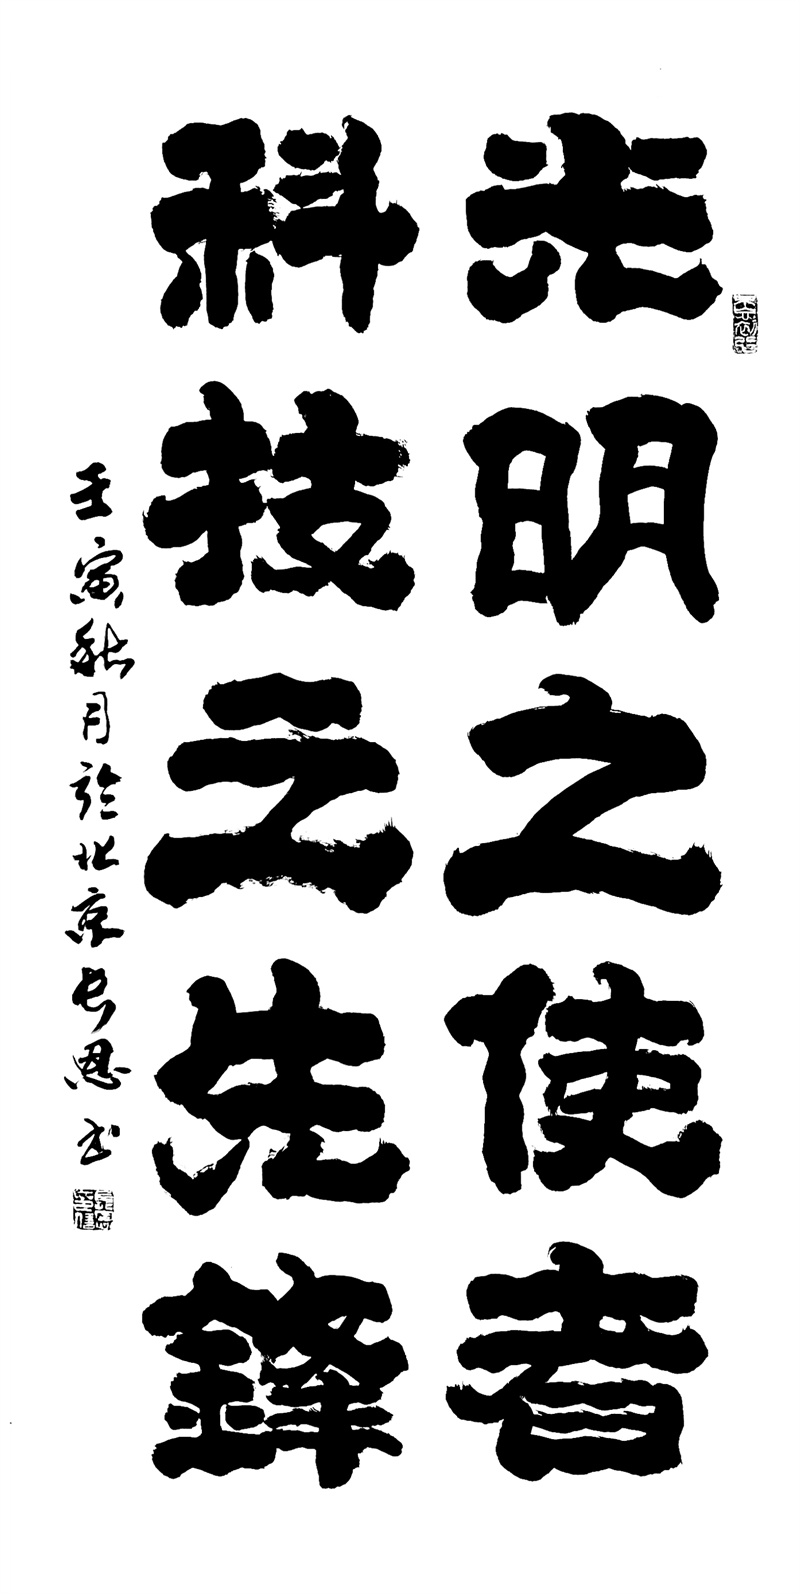 光明之使者
科技之先鋒
壬寅秋月於北京長恩书